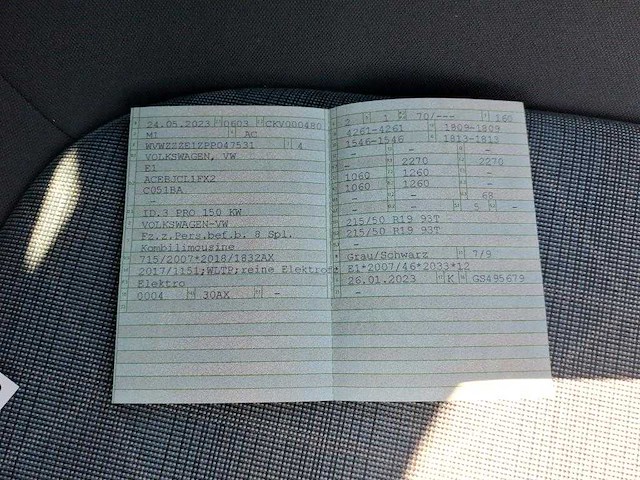 24.05.2023 0603 CKV000480
M1 AC
WVWZZZE1ZPP047531 4
VOLKSWAGEN, VW
E1
ACEBJCL1FX2
C051BA
-
ID.3 PRO 150 KW
VOLKSWAGEN-VW
Fz.z.Pers.bef.b. 8 Spl.
Kombilimousine
715/2007*2018/1832AX
2017/1151;WLTP;reine Elektrof.
Elektro
0004 30AX -
2 1 70/--- 160
4261-4261 1809-1809
1546-1546 1813-1813
- - -
- 2270 2270
1060 1260 -
1060 1260 -
- - 68
- - 5 -
215/50 R19 93T
215/50 R19 93T
-
Grau/Schwarz 7/9
E1*2007/46*2033*12
26.01.2023 K GS495679
-